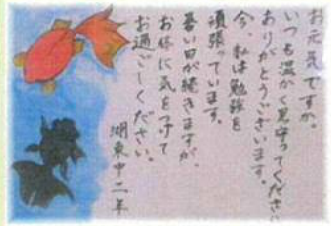 お元気ですか。
いつも温かく見守ってください
ありがとうございます。
今、私は勉強を
頑張っています。
暑い日が続きますが、
お体に気をつけて
お過ごしください。
湖東中二年